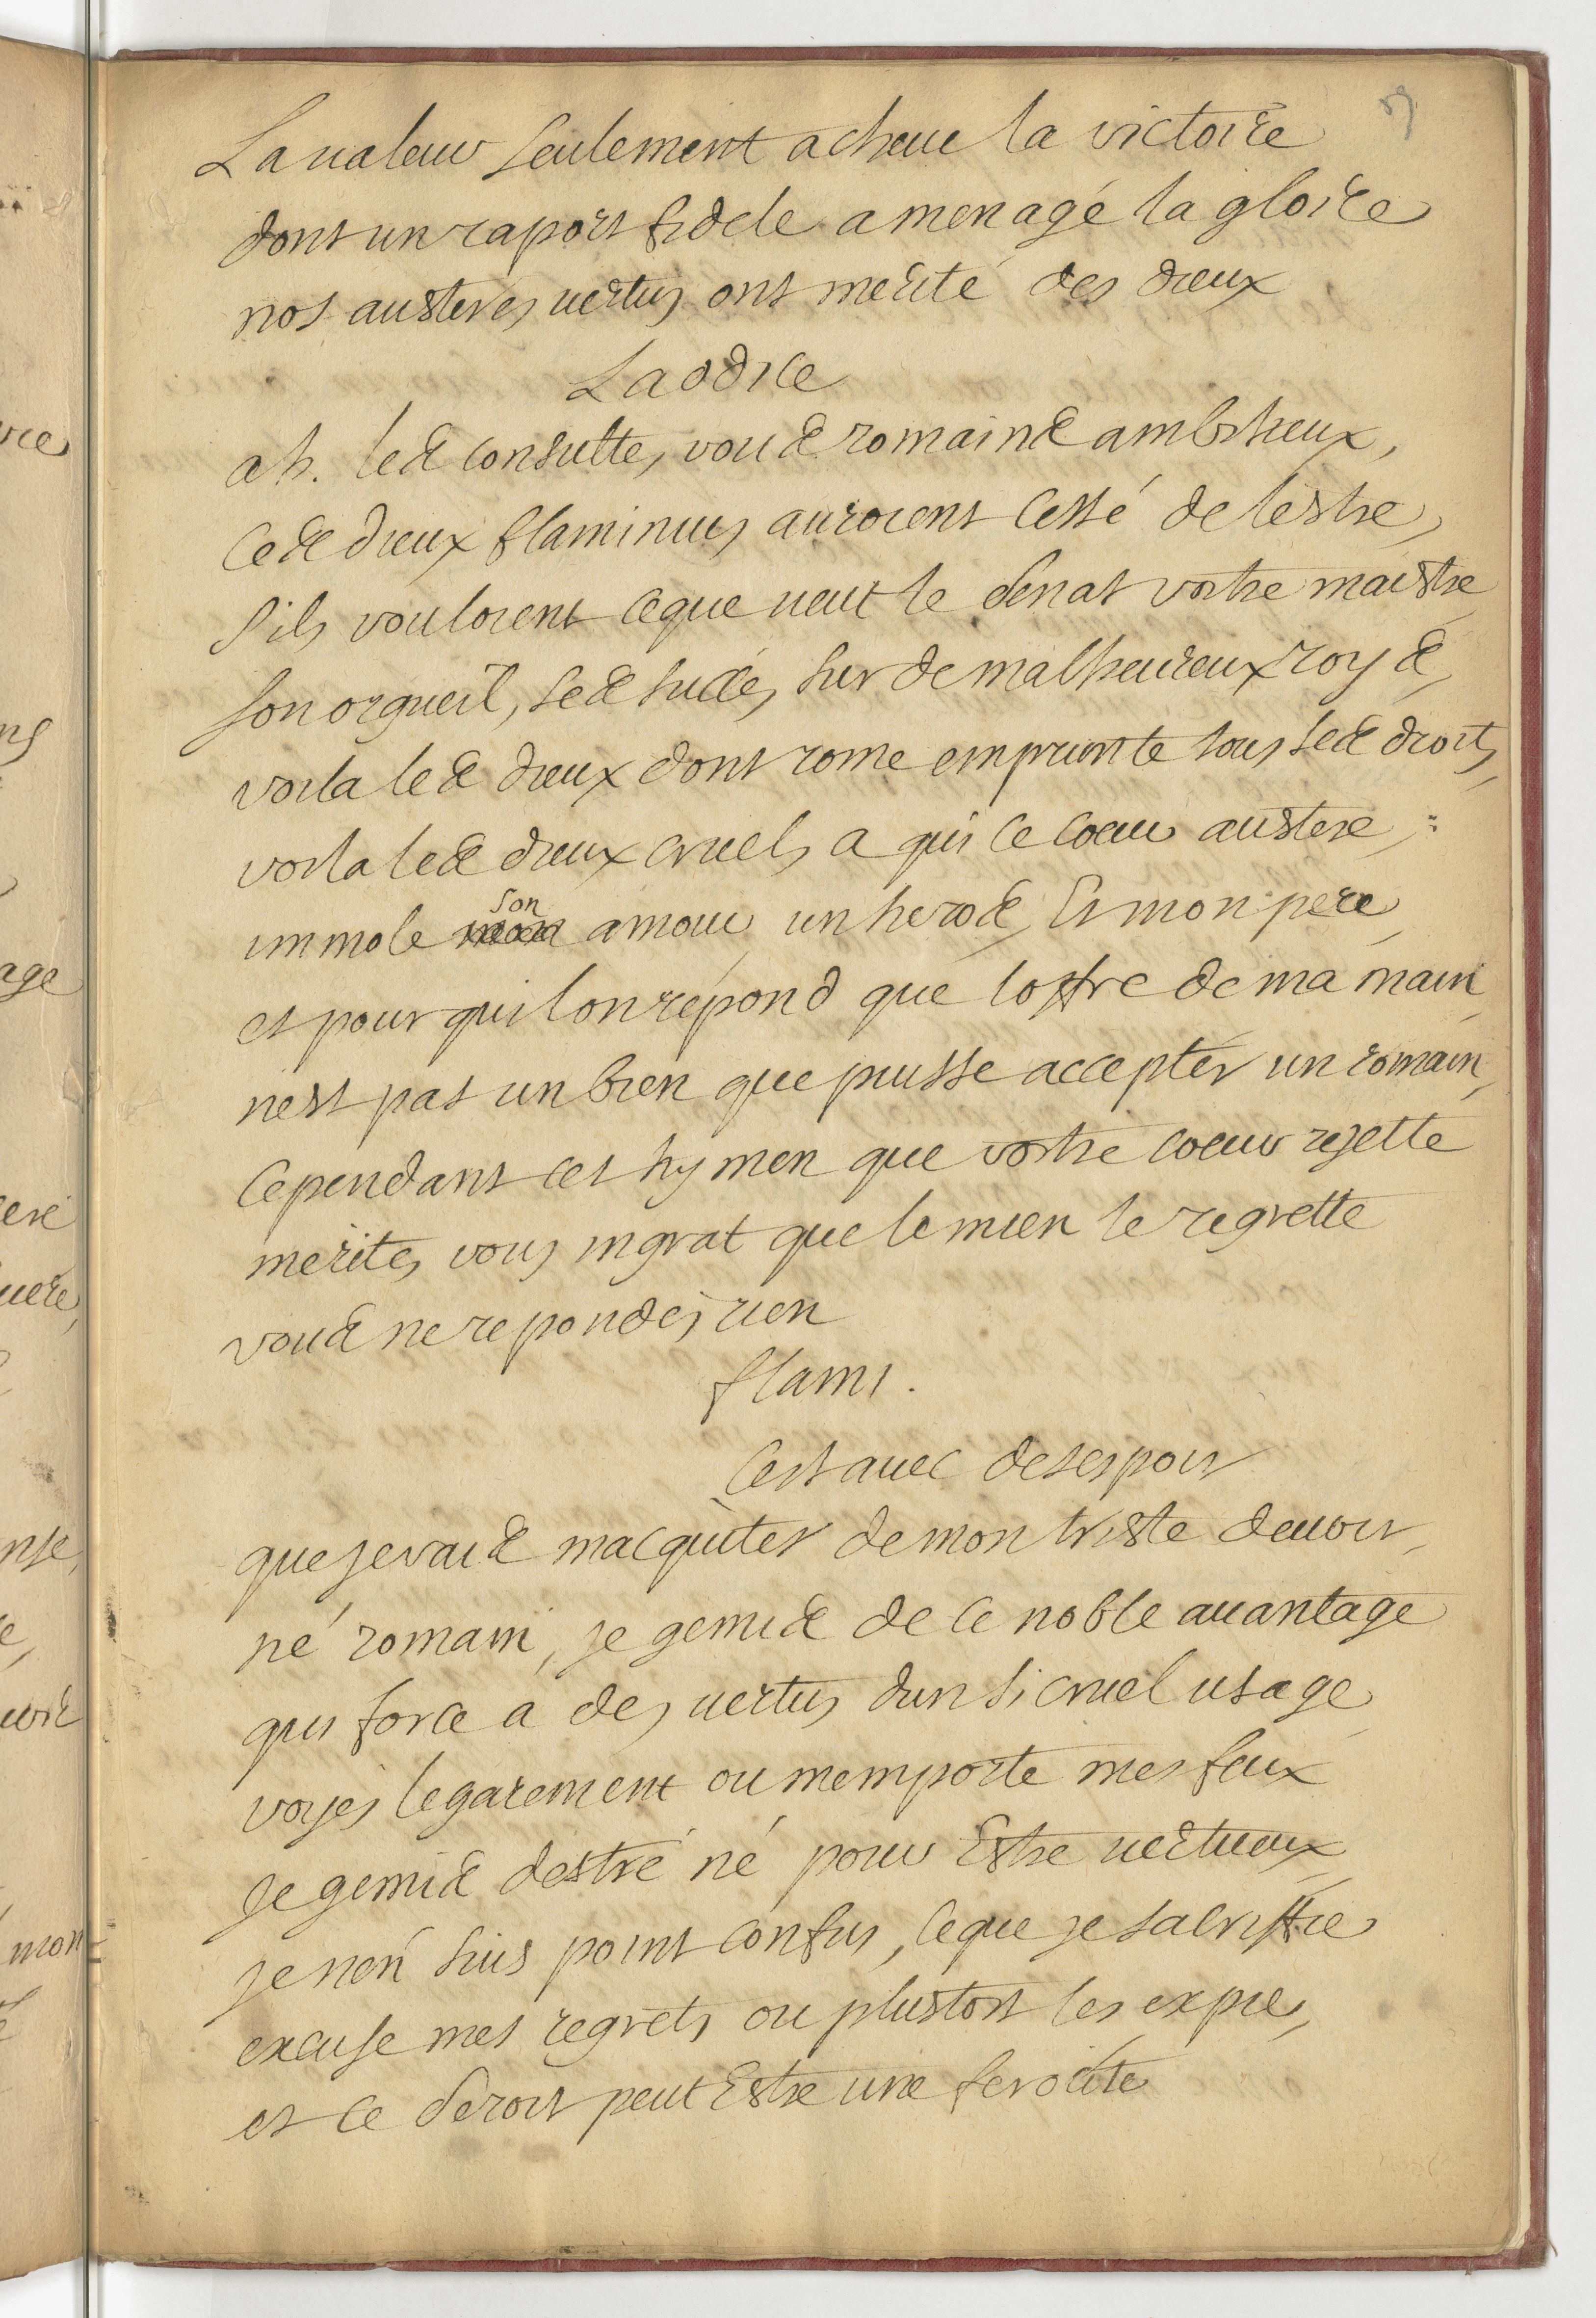 59
La ualeur seulement acheue la victoire
dont un raport fidele a menagé la gloire
nos austeres uertus ont merité des dieux
Laodice
ah. les consulte, vous romains ambitieux,
ces dieux flaminius auroient cessé de lestre,
s'ils vouloient ce que ueut le senat vostre maistre
son orgueil, ses succés sur de malheureux roys,
voila les dieux dont rome emprunte tous ses droits,
voila les dieux cruels a qui ce coeur austere,:
immole son amour, un heros, Et mon pere,
et pour qui lon répond que loffre de ma main
nest pas un bien que puisse accepter un romain,
Cependant cet hymen que vostre coeur rejette
merites vous ingrat que le mien le regrette
vous ne repondés rien
flami.
Cest auec desespoir
que je vais macquiter de mon triste deuoir,
né romain, je gemis de ce noble auantage
qui force a des uertus dun si cruel usage
voyés legarement ou memporte mes feux
Je gemis destre né pour Estre uertueux,
je nen suis point confus, ce que je sacriffie
excuse mes regrets, ou plustost les expie,
et ce seroit peut Estre une ferocité